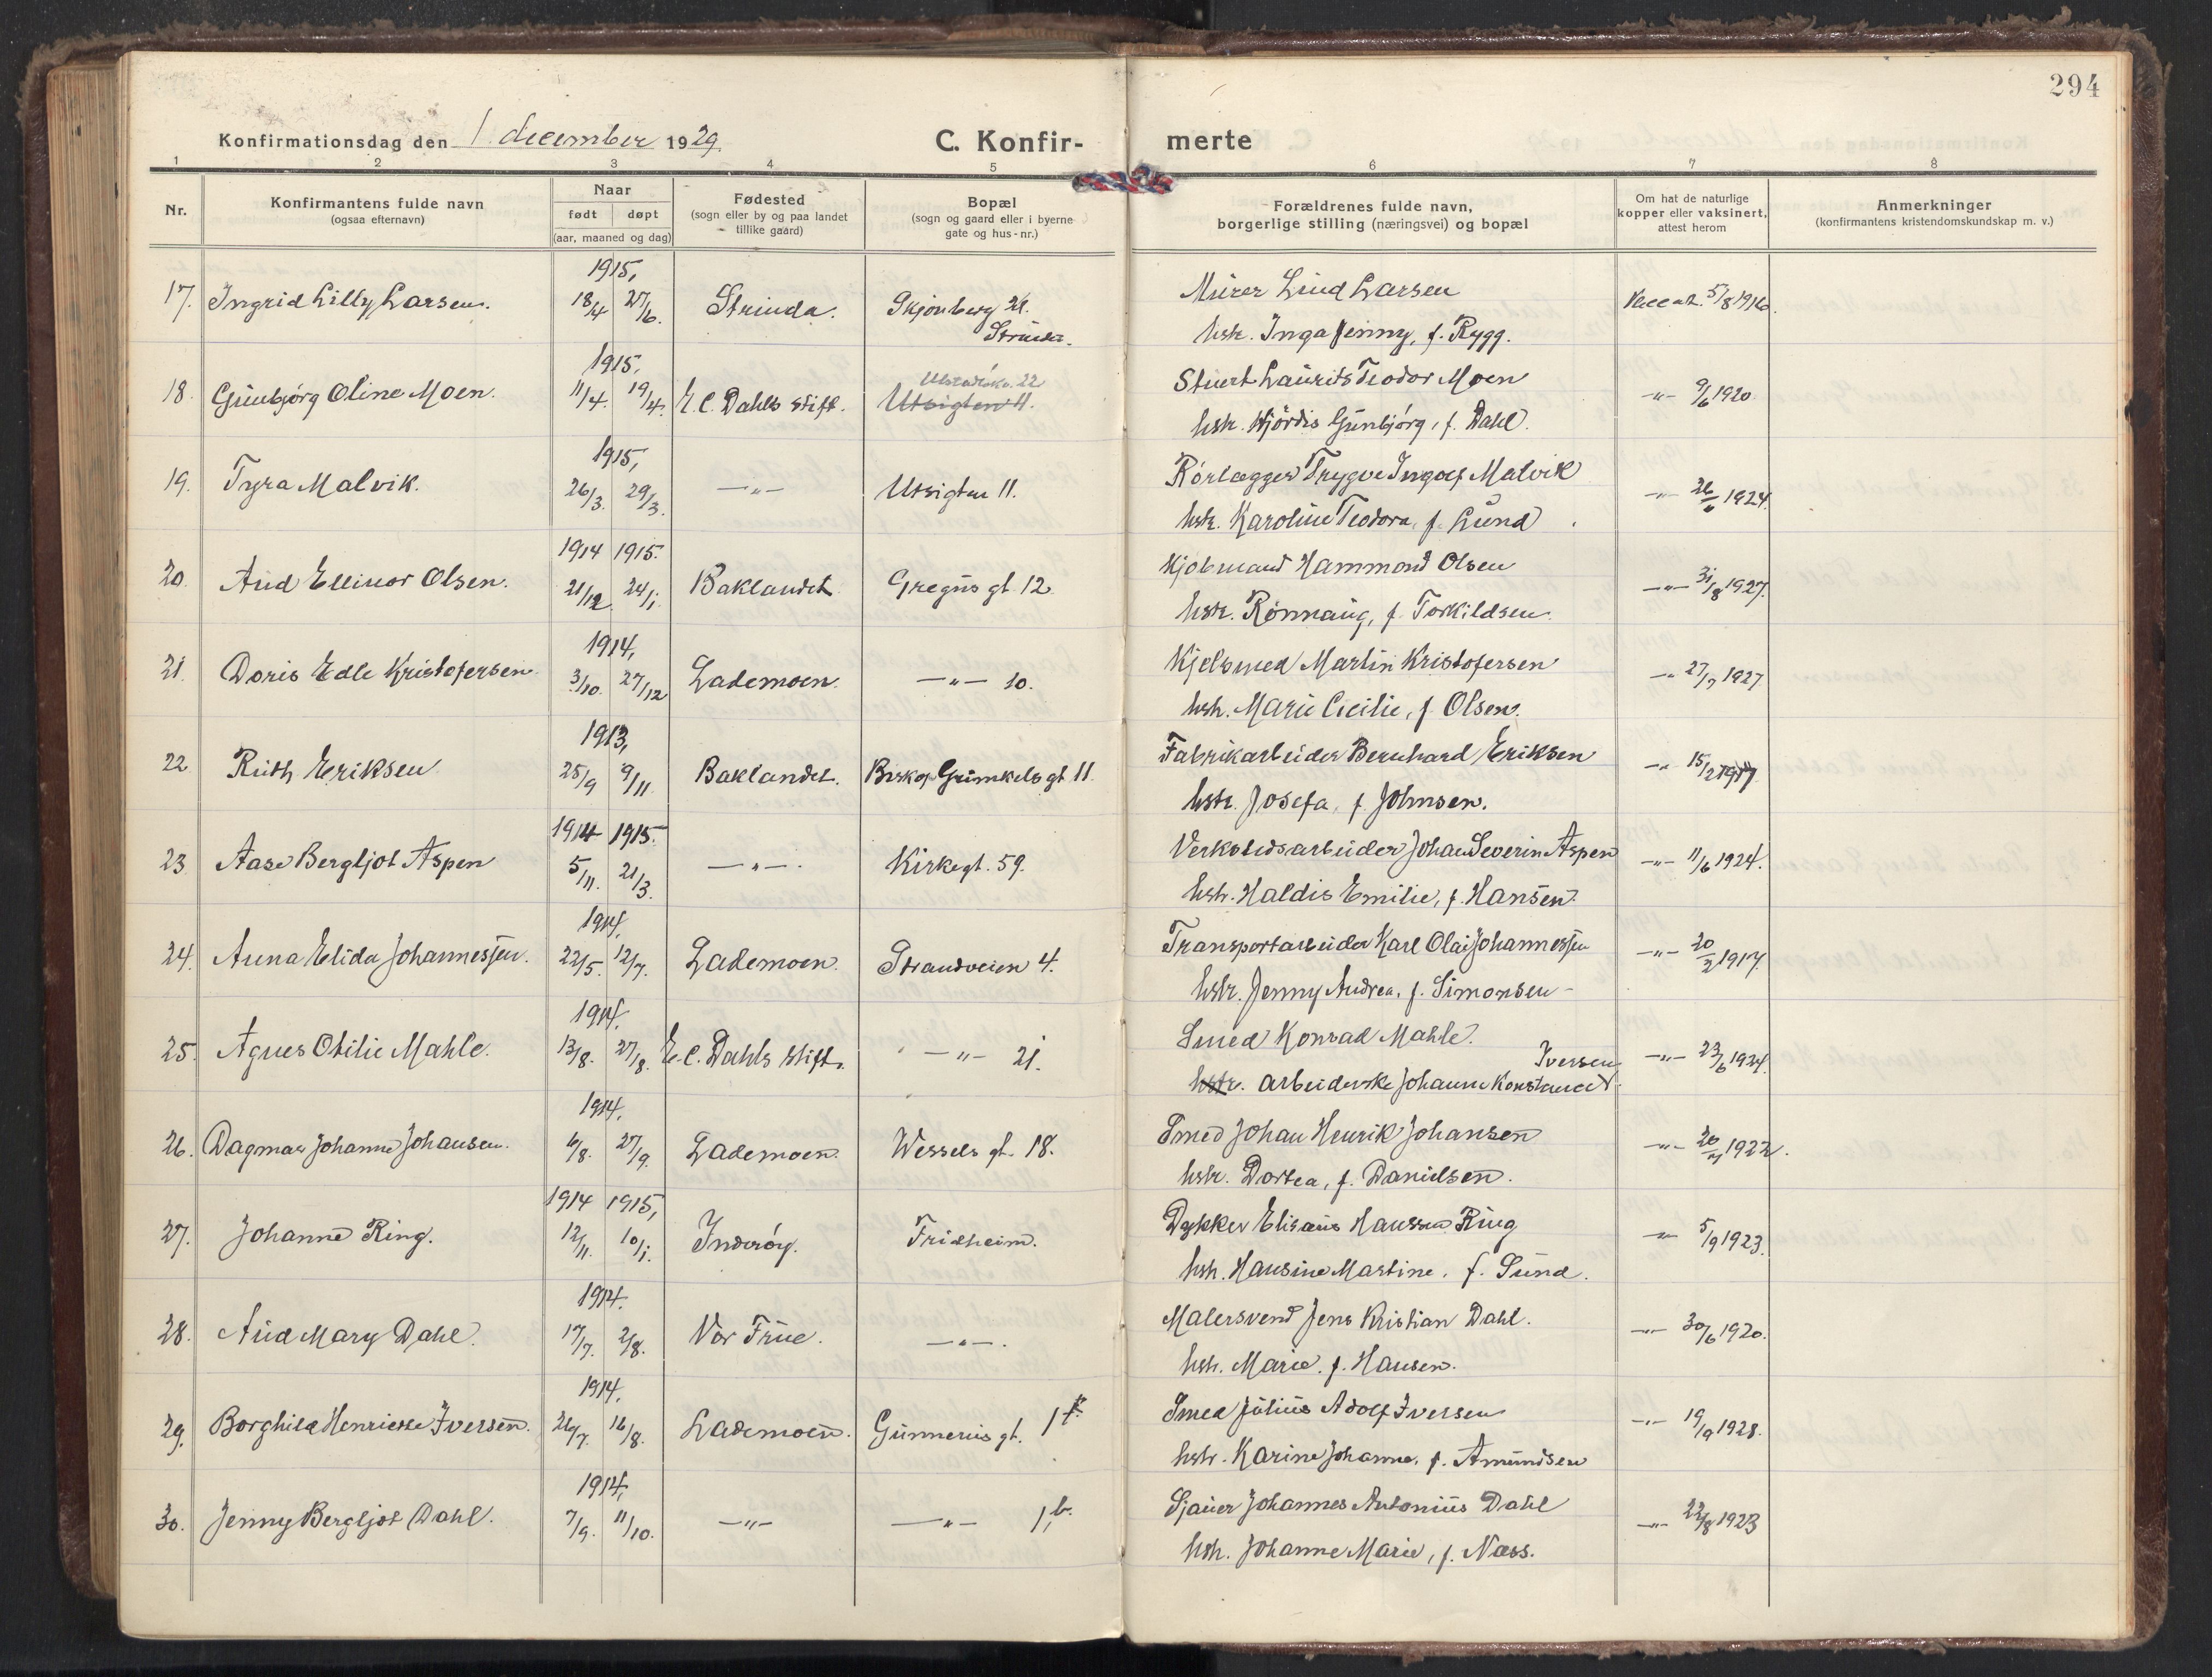 294
Konfirmationsdag den 1. december 1929.
C. Konfir-
merte
1 2 3 4 5 6 7 8
Nr.
Konfirmantens fulde navn
(ogsaa efternavn)
Naar
født døpt
(aar, maaned og dag)
Fødested
(sogn eller by og paa landet
tillike gaard)
Bopæl
(sogn og gaard eller i byerne
gate og hus-nr.)
Forældrenes fulde navn,
borgerlige stilling (næringsvei) og bopæl
Om hat de naturlige
kopper eller vaksinert,
attest herom
Anmerkninger
(konfirmantens kristendomskundskap m. v.)
1915,
17. Ingrid Lilly Larsen. 18/4 27/6. Strinda. Strinda. Murer Lind Larsen 5/8 1916.
hstr. Inga Jenny, f. Rygg.
1915,
18. Gunbjørg Oline Moen. 11/4. 19/4. E. C. Dahls stift. Utsigten 11. Stuert Laurits Teodor Moen -"- 9/6 1920.
hstr. Hjördis Gunbjörg, f. Dahl.
1915,
19. Tyra Malvik. 26/3. 29/3. -"- Utsigten 11. Rörlægger Trygve Ingolf Malvik -"- 26/6 1924.
hstr. Karoline Teodora, f. Lund.
1914 1915.
20. Aud Ellinor Olsen. 21/12. 24/1. Baklandet Gregus gt. 12. Kjöbmand Hammond Olsen -"- 31/8 1927.
hstr. Rönnaug, f. Torkildsen.
1914,
21. Doris Edle Kristofersen. 3/10. 27/12 Lademoen. -"- 10. Kjelsmed Martin Kristofersen -"- 27/7 1927.
hstr. Marie Cicilie, f. Olsen.
1913,
22. Ruth Eriksen 25/9 9/11. Baklandet. Biskop Grimkels gt. 11. Fabrikarbeider Bernhard Eriksen -"- 15/2 1917.
hstr. Josefa, f. Johnsen.
1914 1915.
23. Aase Bergljot Aspen 5/11. 21/3. -"-. Kirkegt. 59. Verkstedsarbeider Johan Severin Aspen -"- 11/6 1924.
hstr. Haldis Emilie, f. Hansen.
1914.
24. Anna Elida Johannessen. 22/5. 12/7. Lademoen. Strandveien 4. Transportarbeider Karl Olai Johannessen -"- 20/2 1917.
hstr. Jenny Andrea, f. Simonsen-
1914.
25. Agnes Otilie Mahle. 13/8. 27/8. E. C. Dahls stift. -"- 21. Smed Konrad Mahle. -"- 23/6 1924.
Iversen
hstr. arbeiderske Johanne Konstance
1914.
26. Dagmar Johanne Johansen. 6/8. 27/9. Lademoen. Wessels gt. 18. Smed Johan Henrik Johansen -"- 1922.
hstr. Dortea, f. Danielsen.
1914 1915,
27. Johanne Ring. 12/11. 10/1. Inderöy. Fridheim. Dykker Elisæus Hansen Ring -"- 5/9 1923.
hstr. Hansine Martine, f. Sund.
1914.
28. Aud Mary Dahl. 17/7. 2/8. Vor Frue. -"-. Malersvend Jens Kristian Dahl. -"- 30/6 1920.
hstr. Marie, f. Hansen.
1914.
29. Borghild Henriette Iversen. 26/7. 16/8. Lademoen. Gunnerus gt. Smed Julius Adolf Iversen -"- 19/9 1928.
hstr. Karine Johanne, f. Amundsen
1914,
30. Jenny Bergljot Dahl. 7/9. 11/10. -"- -"- 1, b. Sjauer Johannes Antonius Dahl -"- 22/8 1923
hstr. Johanne Marie, f. Næss.